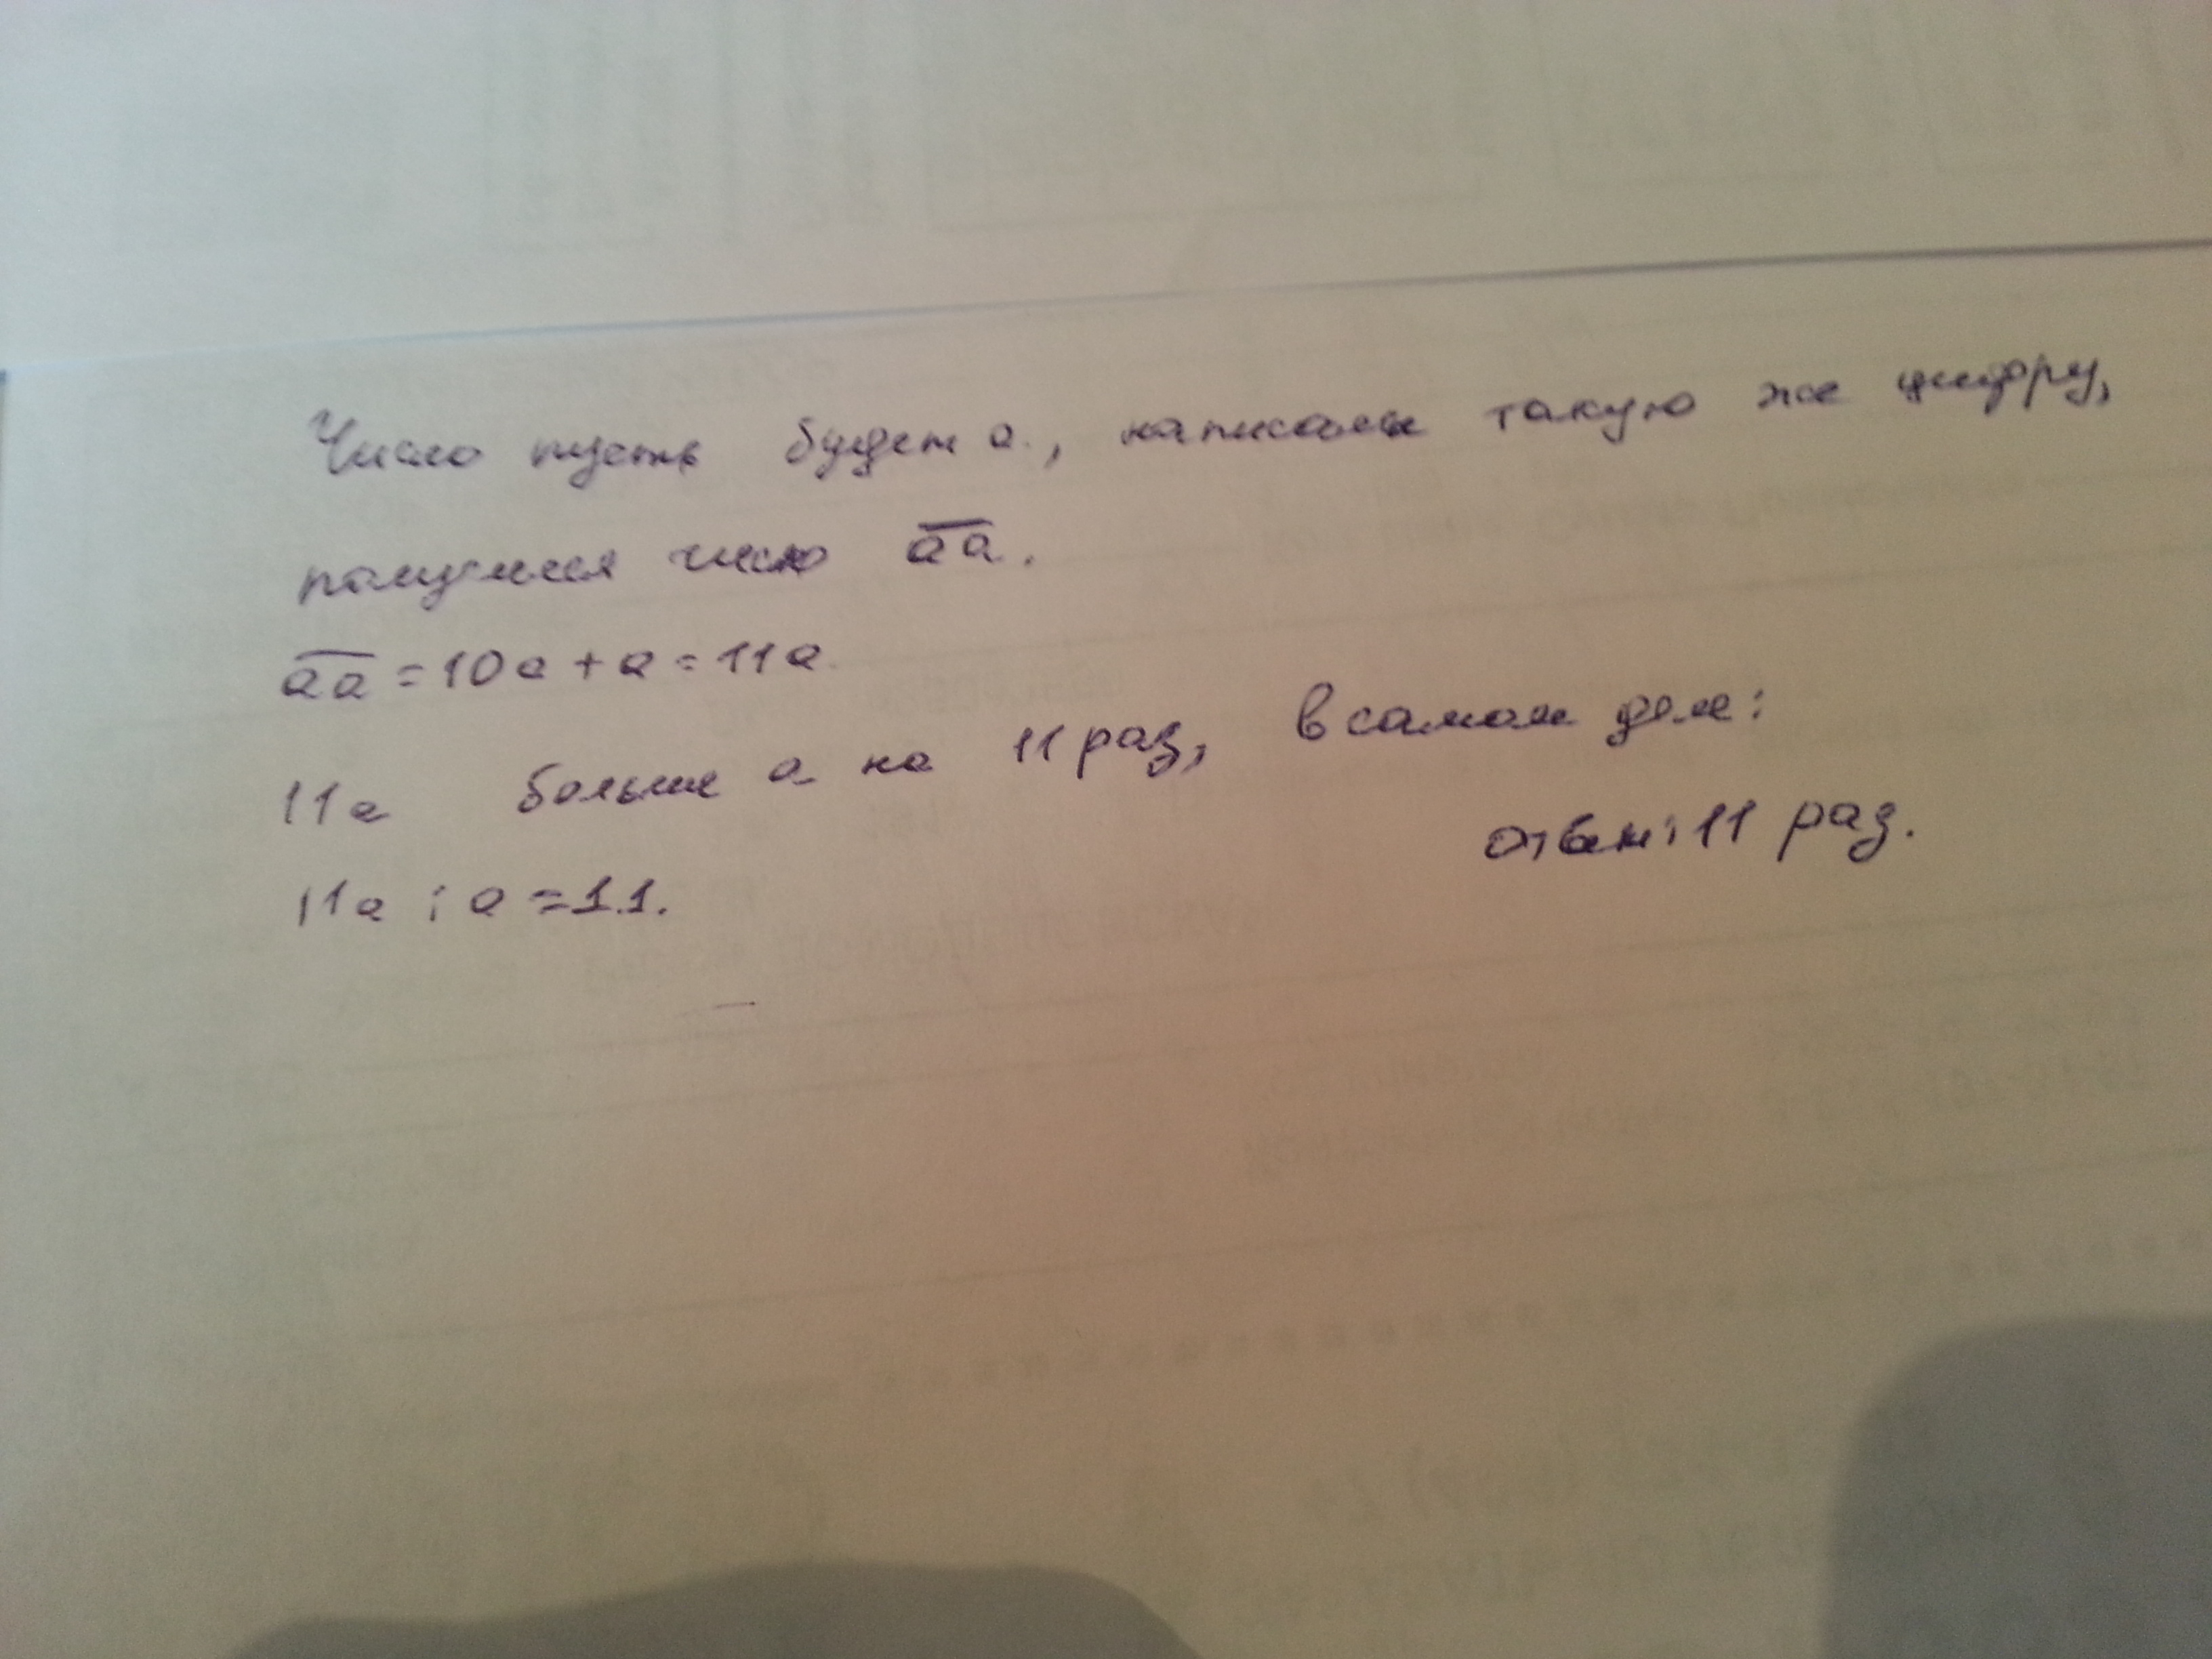 Число пусть будет a, написали такую же цифру,
получился число a̅a̅.
a̅a̅ = 10a + a = 11a
11a больше a на 11 раз, в самом деле:
11a : a = 11.
ответ: 11 раз.